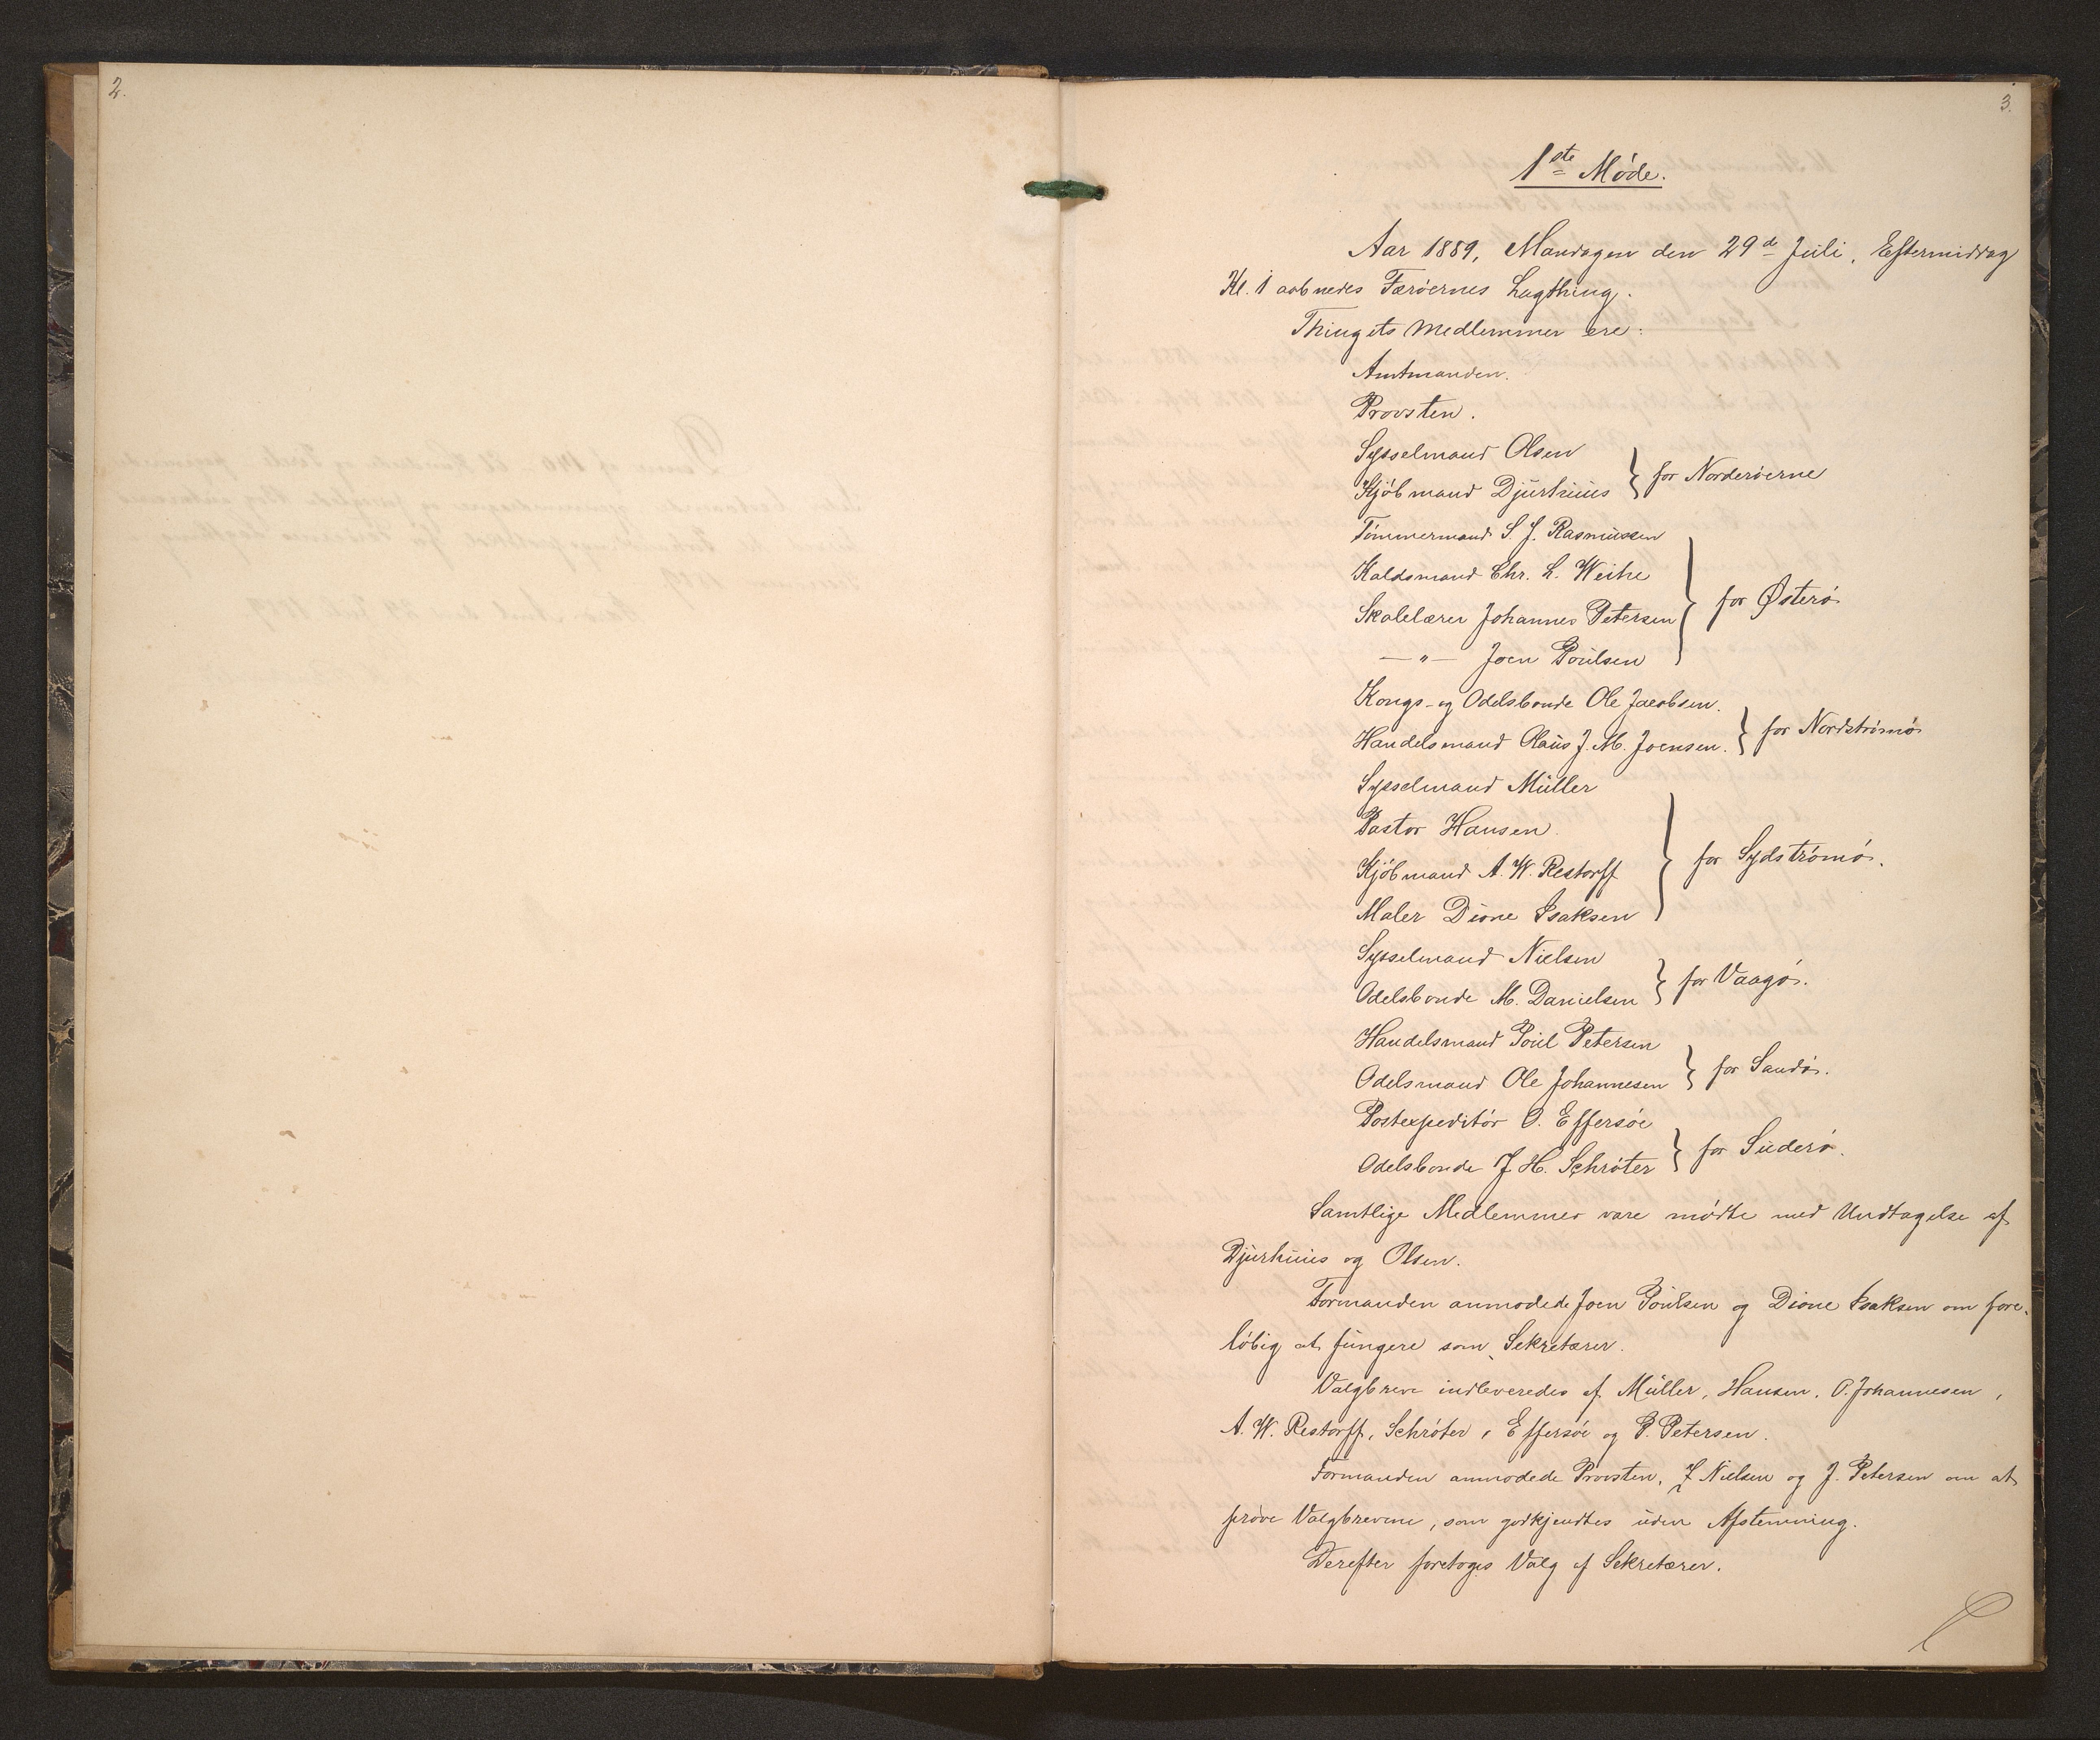 2.
3.
1ste Møde.
Aar 1889, Mandagen den 29de Juli, Eftermiddag
Kl. 1 aabnedes Færøernes Lagthing.
Thingets Medlemmer ere:
Amtmanden.
Provsten.
Sysselmand Olsen
Kjøbmand Djurhuus } for Norderøerne
Tømmermand S. J. Rasmussen
Kaldsmand Chr. L. Weihe
Skolelærer Johannes Petersen } for Østerø
— " — Joen Poulsen
Kongs- og Odelsbonde Ole Jacobsen.
Handelsmand Olaus J. M. Joensen. } for Nordstrømø
Sysselmand Müller
Pastor Hansen
Kjøbmand A. W. Restorff } for Sydstrømø.
Maler Dione Isaksen
Sysselmand Nielsen
Odelsbonde M. Danielsen } for Vaagø.
Handelsmand Poul Petersen
Odelsmand Ole Johannesen } for Sandø.
Postexpeditør O. Effersøe
Odelsbonde J. H. Schrøter } for Suderø.
Samtlige Medlemmer vare mødte med Undtagelse af
Djurhuus og Olsen.
Formanden anmodede Joen Poulsen og Dione Isaksen om fore-
løbig at fungere som Sekretærer.
Valgbreve indleveredes af Müller, Hansen, O. Johannesen,
A. W. Restorff, Schrøter, Effersøe og P. Petersen.
Formanden anmodede Provsten, Nielsen og J. Petersen om at
prøve Valgbrevene, som godkjendtes uden Afstemning.
Derefter foretoges Valg af Sekretærer.